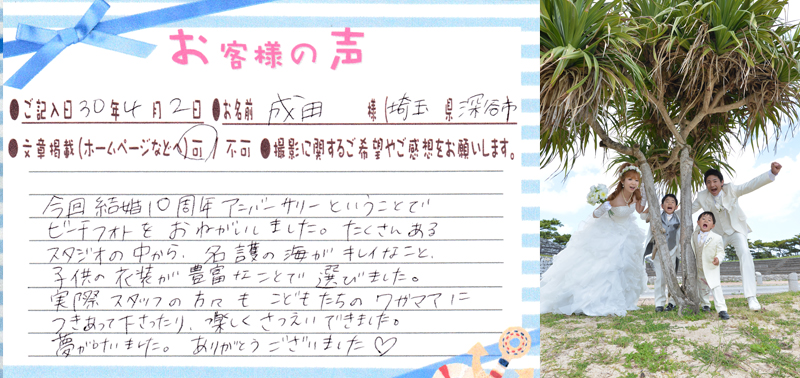 お客様の声
●ご記入日30年4月2日 ●お名前 成田 様 (埼玉 県 深谷市
●文章掲載(ホームページなどへ) 可 / 不可 ●撮影に関するご希望やご感想をお願いします。
今回 結婚10周年アニバーサリーということで
ビーチフォトを おねがいしました。たくさんある
スタジオの中から、名護の海がキレイなこと、
子供の衣装が豊富なことで選びました。
実際スタッフの方も こどもたちのワガママに
つきあって下さったり、楽しくさつえいできました。
夢が叶いました。ありがとうございました♡